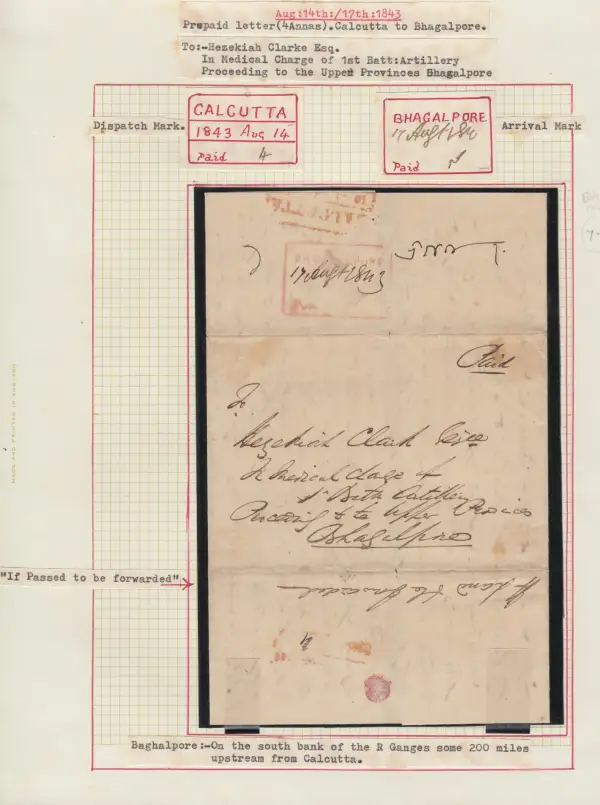 Aug:14th:/17th:1843
Prepaid letter(4Annas).Calcutta to Bhagalpore.
To:-Hezekiah Clarke Esq.
In Medical Charge of 1st Batt:Artillery
Proceeding to the Upper Provinces Bhagalpore
Dispatch Mark.
CALCUTTA
1843 Aug 14
Paid 4
BHAGALPORE
17 Aug
Paid
Arrival Mark
CALCUTTA
17 Augt 1843
Paid
To
Hezekiah Clark Esqre
In Medical Charge of
1st Battn Artillery
Proceeding to the Upper Provinces
Bhagulpore
"If Passed to be forwarded".
4
MADE AND PRINTED IN ENGLAND
Baghalpore:-On the south bank of the R Ganges some 200 miles
upstream from Calcutta.